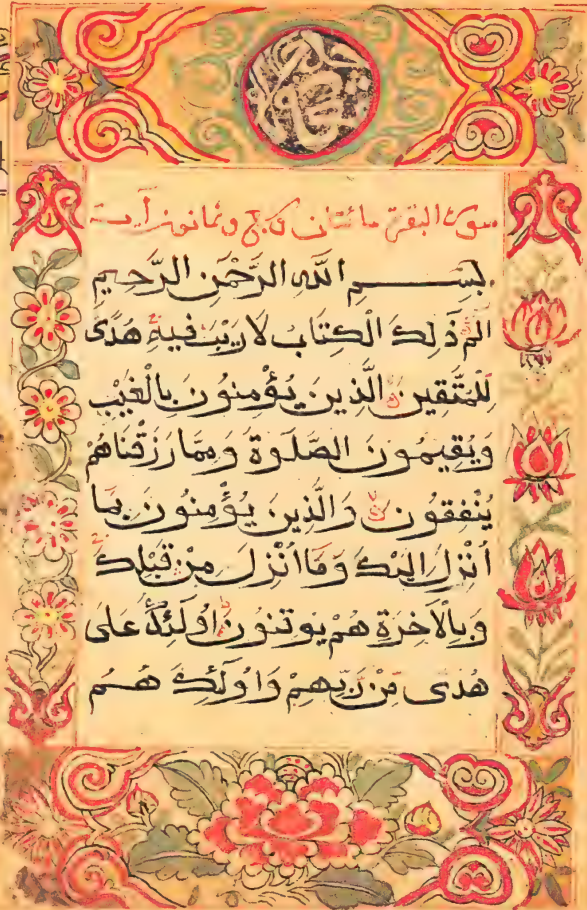 سورة البقرة مائتان وثمانون آية
بِسْمِ اللّٰهِ الرَّحْمٰنِ الرَّحِيمِ
الم ذَلِكَ الْكِتَابُ لَا رَيْبَ فِيهِ هُدًى
لِلْمُتَّقِينَ الَّذِينَ يُؤْمِنُونَ بِالْغَيْبِ
وَيُقِيمُونَ الصَّلَوةَ وَمِمَّا رَزَقْنَاهُمْ
يُنْفِقُونَ وَالَّذِينَ يُؤْمِنُونَ بِمَا
أُنْزِلَ إِلَيْكَ وَمَا أُنْزِلَ مِنْ قَبْلِكَ
وَبِالْآخِرَةِ هُمْ يُوقِنُونَ أُولَئِكَ عَلَى
هُدًى مِّن رَّبِّهِمْ وَأُولَئِكَ هُمُ